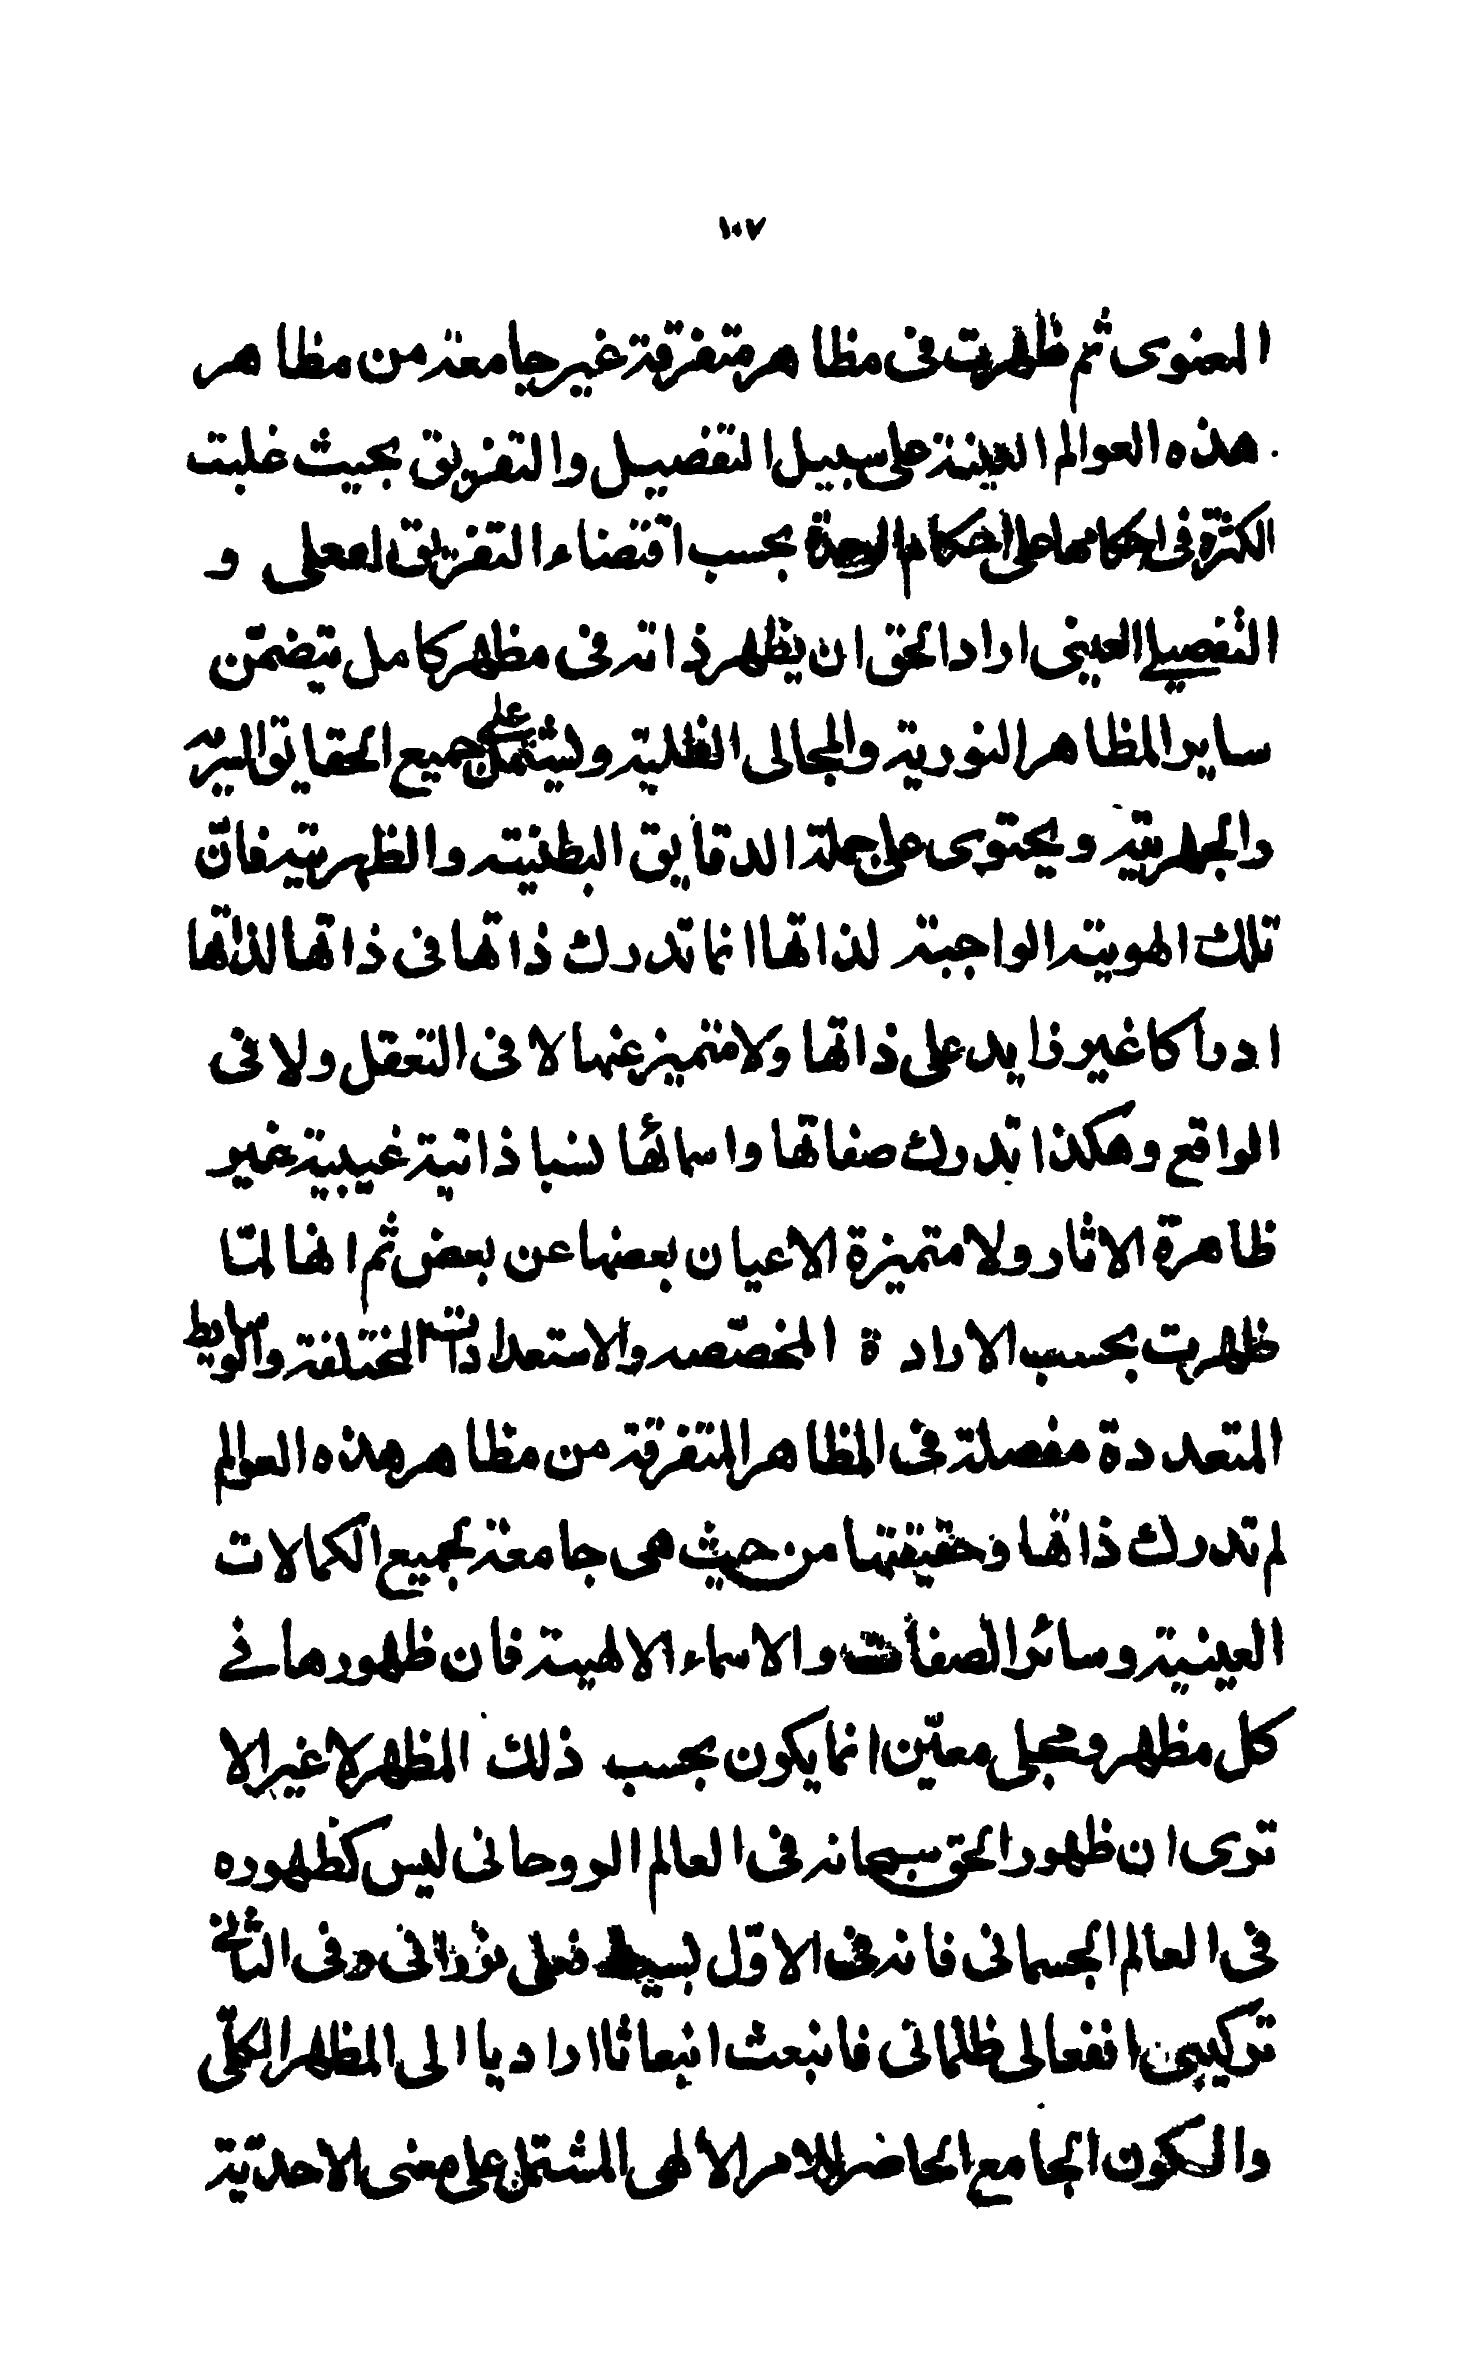 ١٠٧
المعنوى ثم ظهرت فى مظاهر متفرقة غير جامعة من مظاهر
هذه العوالم العينية على سبيل التفصيل والتفريق بحيث غلبت
الكثرة فى احكامها على احكام الوحدة بحسب اقتضاء التفريق الفعلى و
التفصيل العينى اراد الحق ان يظهر ذاته فى مظهر كامل يتضمّن
ساير المظاهر النورية والمجالى الظلية وليشتمل على جميع الحقايق السريّة
والجهريّة ويحتوى على جملة الدقايق البطنيته والظهريته فانّ
تلك الهويته الواجبة لذاتها انما تدرك ذاتها فى ذاتها لذاتها
ادراكا غير زايد على ذاتها ولا متميز عنها لا فى التعقل ولا فى
الواقع وهكذا تدرك صفاتها واسمائها نسبا ذاتية غيبية غير
ظاهرة الاثار ولا متميزة الاعيان بعضها عن بعض ثم انها لمّا
ظهرت بحسب الارادة المخصّصه والاستعدادات المختلفة والوسايط
المتعددة مفصلة فى المظاهر المتفرقة من مظاهر هذه العوالم
لم تدرك ذاتها وحقيقتها من حيث هى جامعة لجميع الكمالات
العينية وسائر الصفات والاسماء الالهية فان ظهورها فى
كل مظهر ومجلى معيّن انما يكون بحسب ذلك المظهر لا غير الا
ترى ان ظهور الحق سبحانه فى العالم الروحانى ليس كظهوره
فى العالم الجسمانى فانه فى الاوّل بسيط فعلى نورانى وفى الثانى
تركيبى انفعالى ظلمانى فانبعث انبعاثا اراديا الى المظهر الكلّى
والكون الجامع الحاضر للامر الالهى المشتمل على معنى الاحديّة